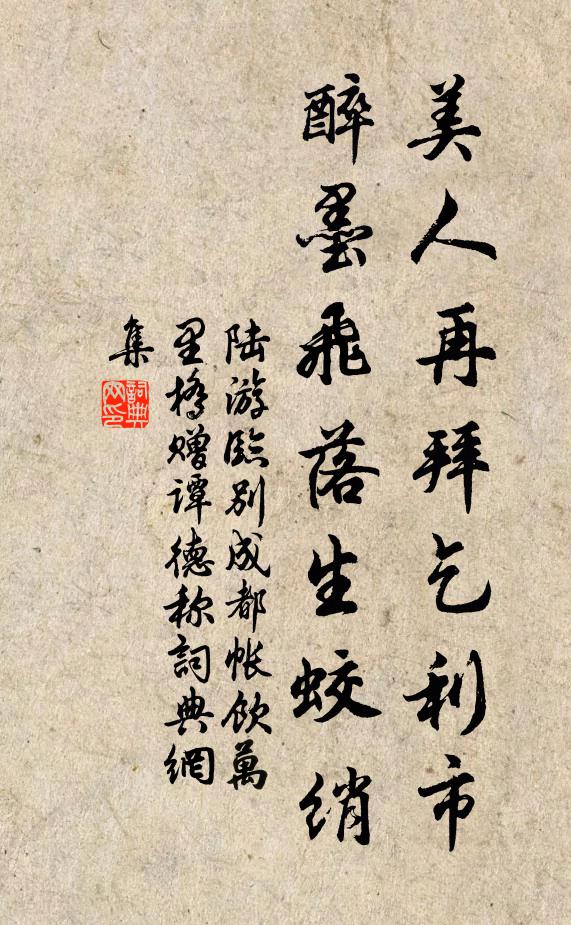 美人再拜乞利市
醉墨飛落生蛟綃
陆游臨別成都帐飲萬
里橋赠谭德称詞典網
集
詞典
网印